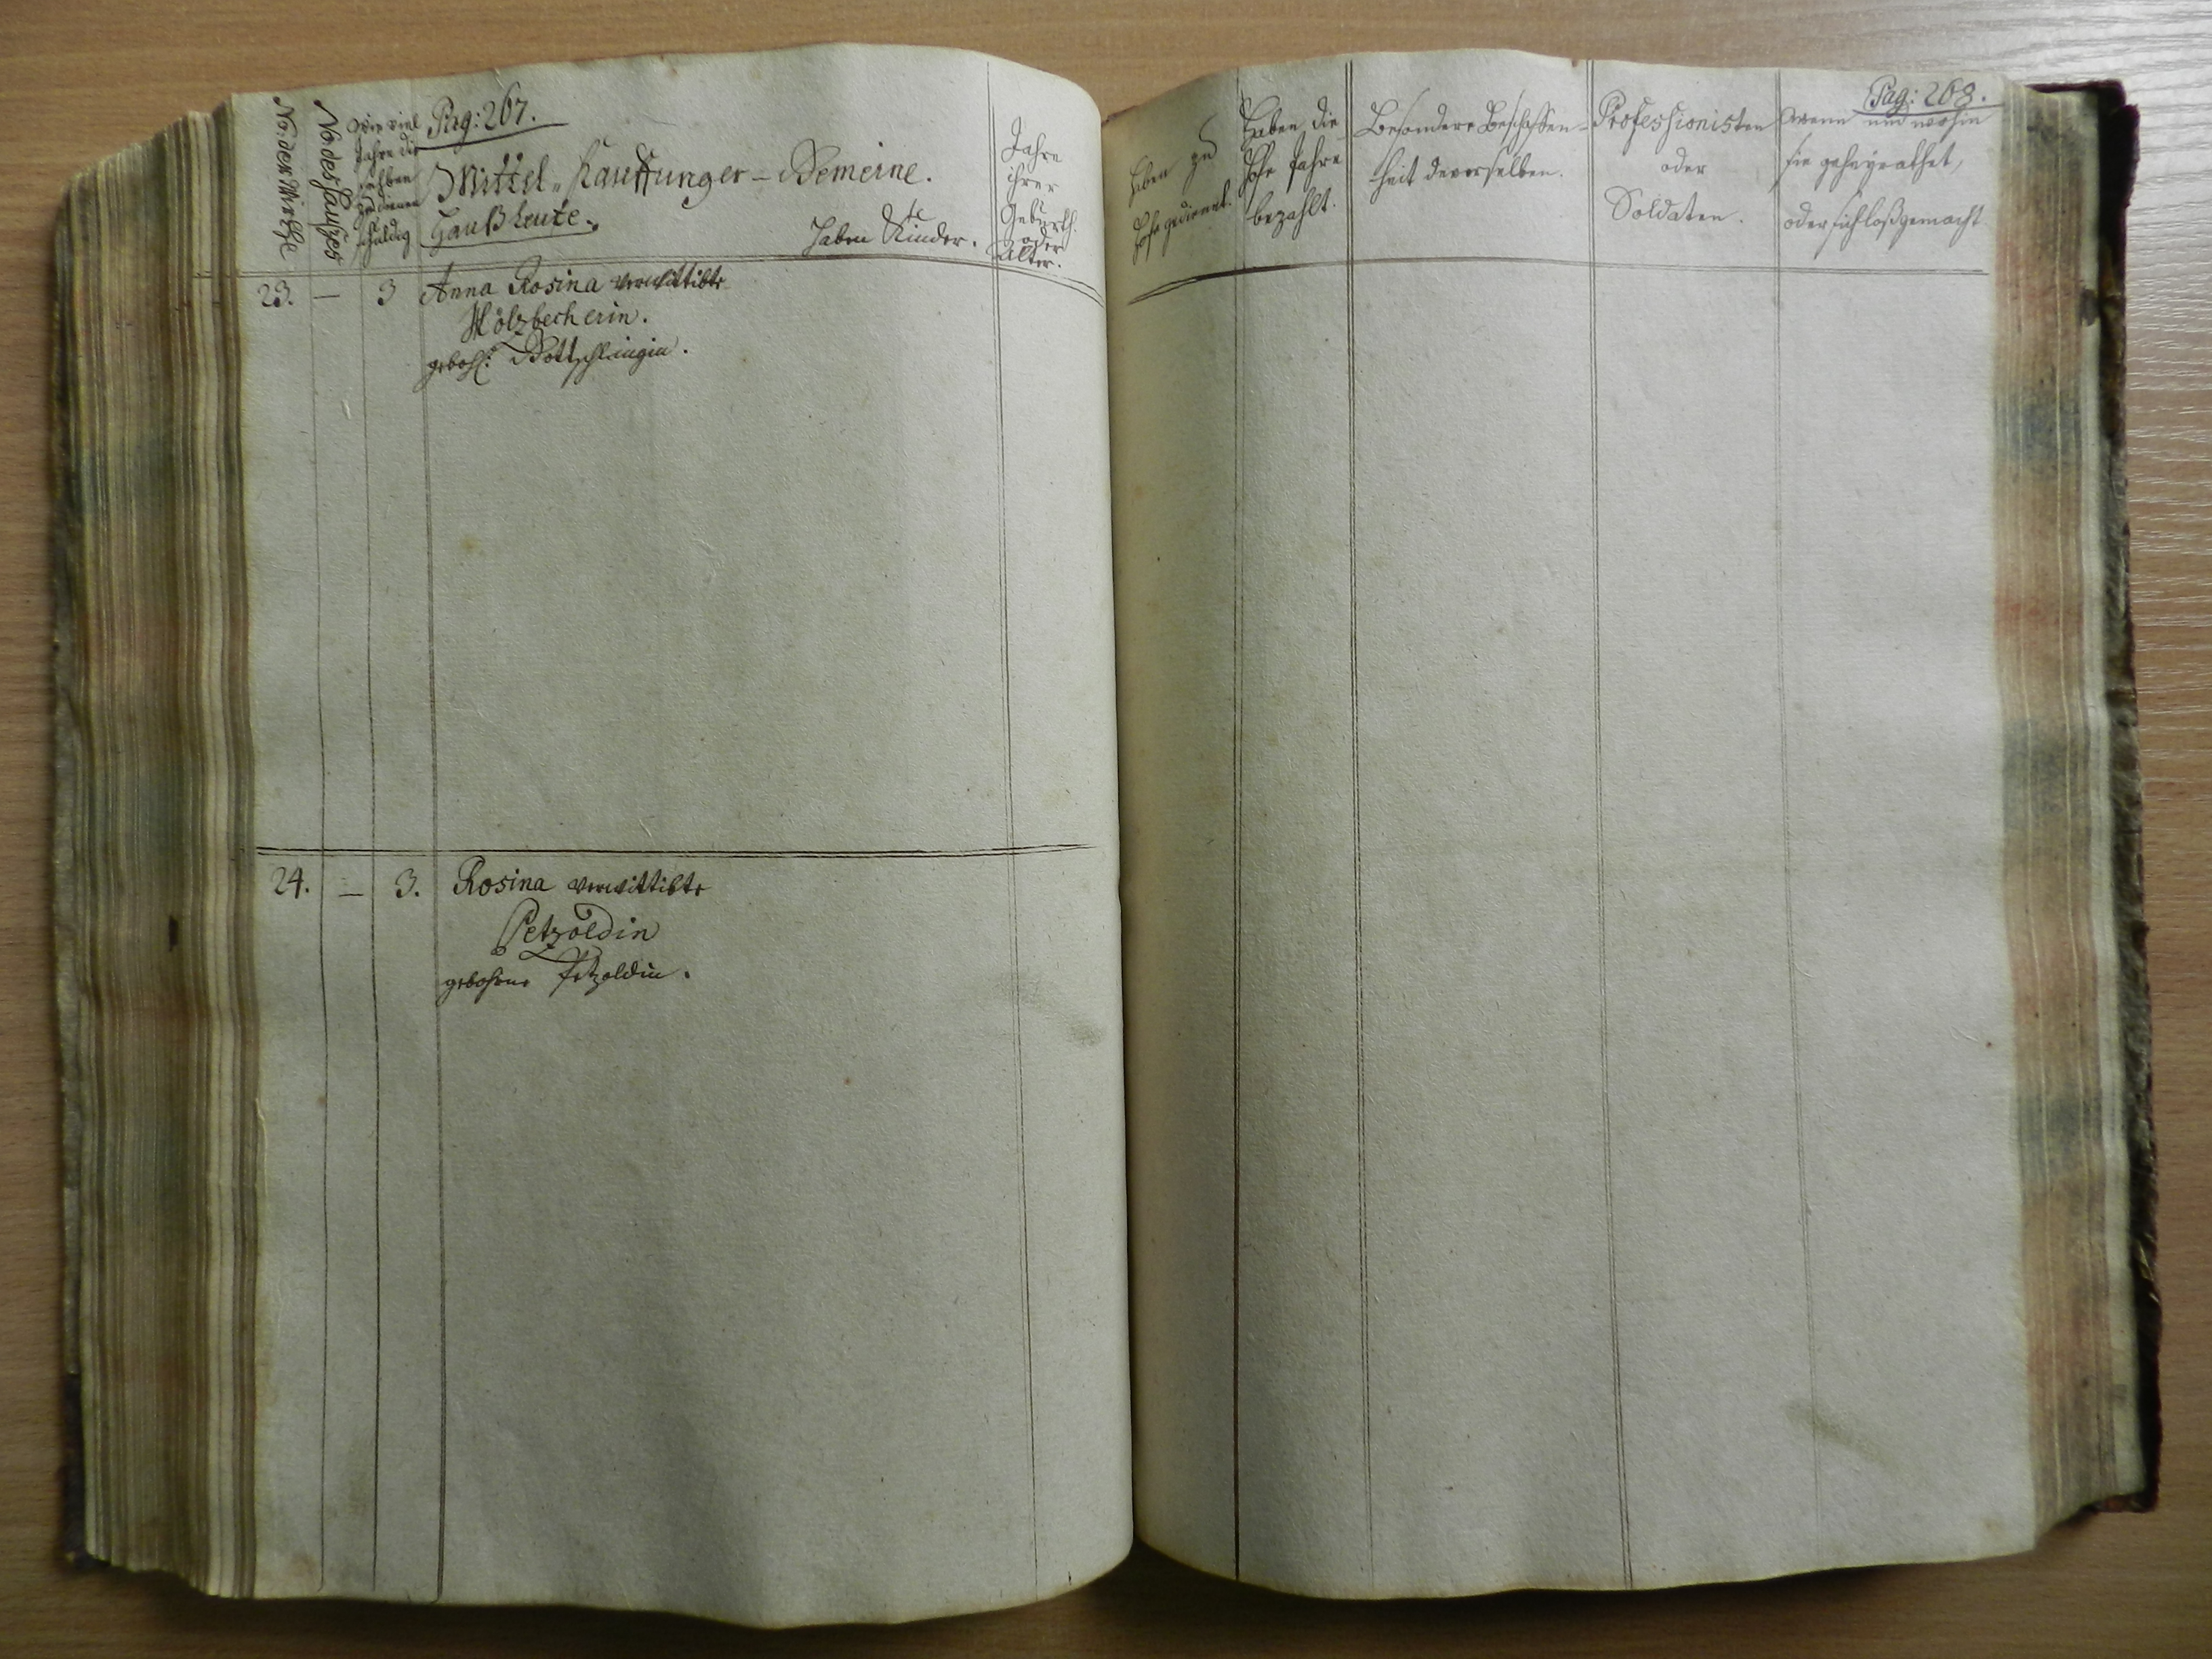 No: der Wirthe
No: des Haußes
Wie viel
Jahre die
selben
zu dienen
schuldig
Pag: 267.
Mittel-Kauffunger-Gemeine.
Haußleute.
Haben Kinder.
Jahre
ihrer
Geburth
oder
Alter.
23. — 3 Anna Rosina verwittibte
Hölzbecherin.
gebohr: Gottschlingin.
24. — 3. Rosina verwittibte
Petzoldin
gebohrne Petzoldin.
Pag: 268.
Haben zu
Hofe gedienet.
Haben die
Hofe Jahre
bezahlt.
Besondere Beschaffen-
heit deverselben.
Professionisten
oder
Soldaten.
Wenn und wohin
sie geheyrathet,
oder sich loßgemacht